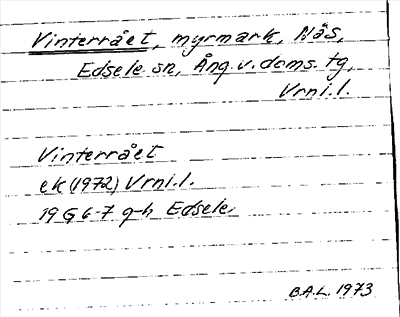 Vinterrået, myrmark, Näs,
Edsele sn, Ång. v. doms. tg,
Vrni.l.
Vinterrået
ek (1972) Vrni.l.
19 G 6-7 g-h Edsele.
B.A.L. 1973